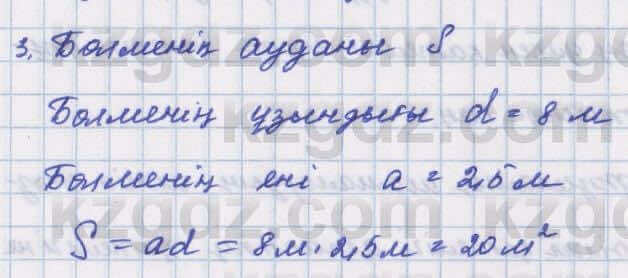 3. Бөлменің ауданы S
Бөлменің ұзындығы d = 8 м
Бөлменің ені a = 2,5 м
S = ad = 8м · 2,5м = 20м²